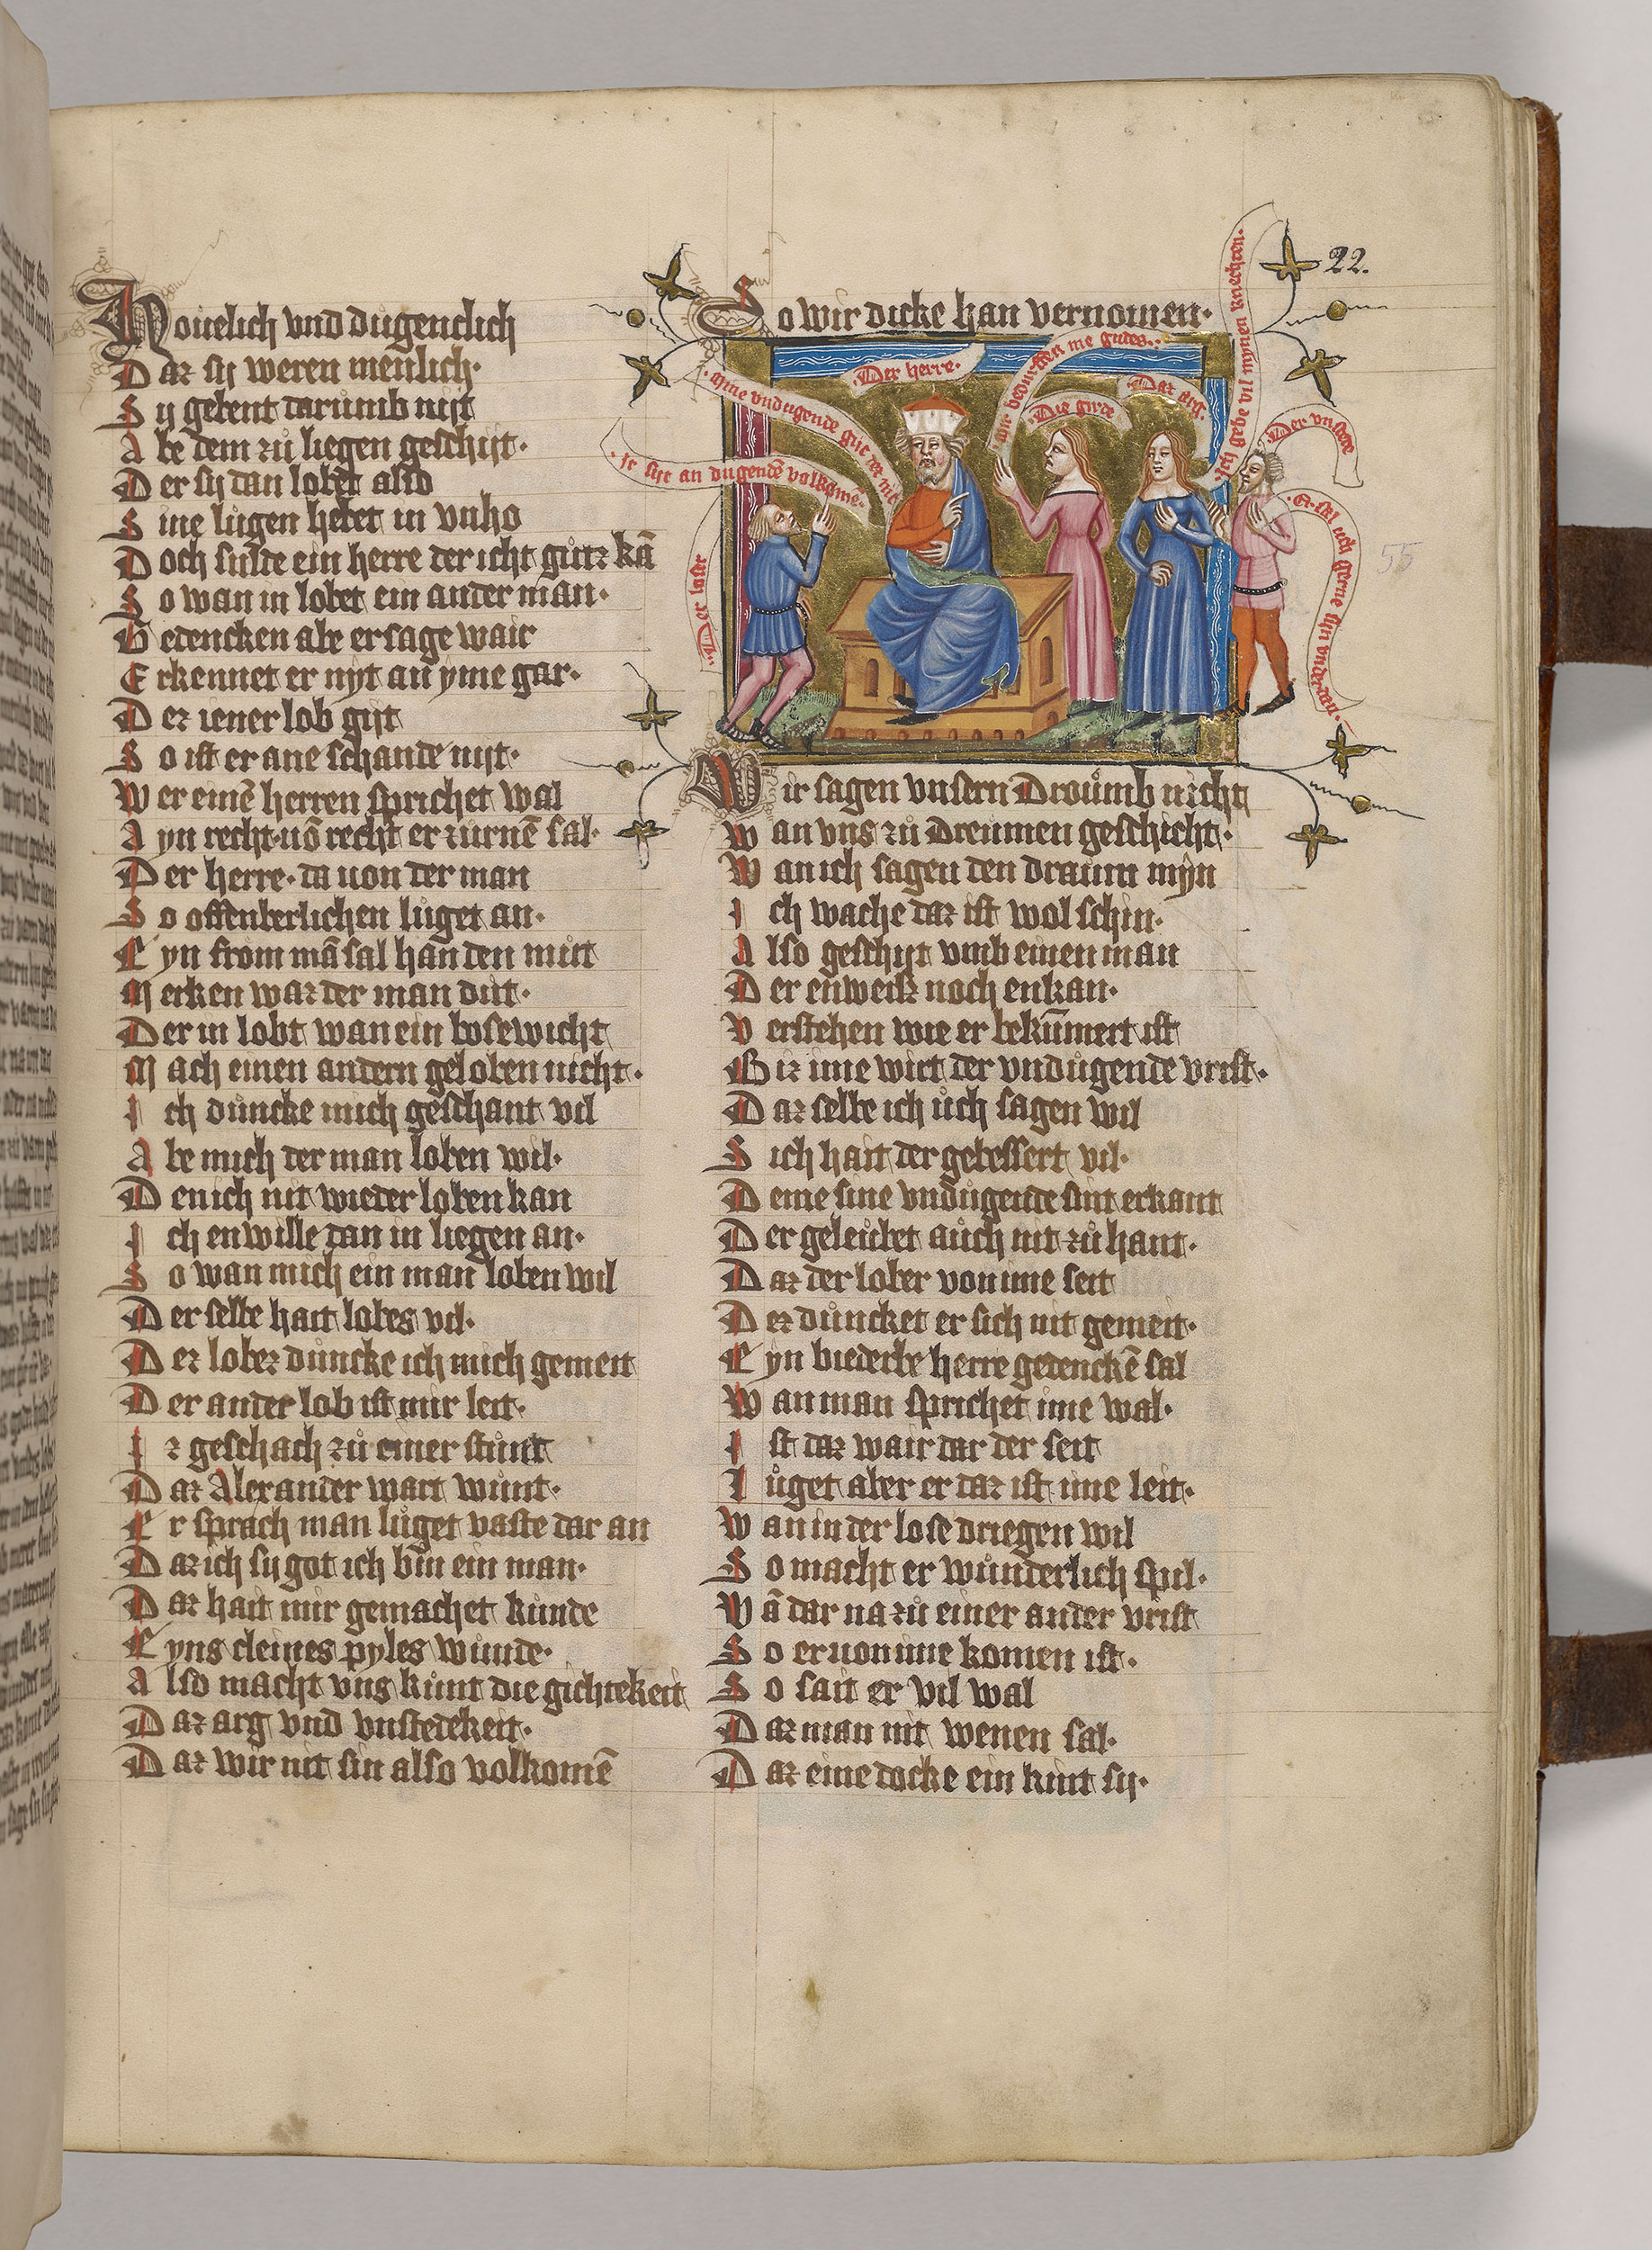 Houelich vnd dugentlich
Daz sy weren menlich·
Sy gebent darumb nyt
Abe dem zů liegen geschyt·
Der sy dan lobet also
Sine lůgen hebet in vnho
Doch sulde ein herre der icht gůtz kā
So wan in lobet ein ander man·
Gedencken abe er sage wair
Erkennet er nyt an yme gar·
Dez iener lob gijt
So ist er ane schande nijt·
Wer einē herren sprichet wal
Ayn recht·uō recht er zurnē sal·
Der herre·da uon der man
So offenberlichen lůget an·
Eyn from mā sal han den můt
Merken waz der man důt·
Der in lobt wan ein bosewicht
Mach einen andern geloben nicht·
Ich důncke mich geschant vil
Abe mich der man loben wil·
Den ich nit wieder loben kan
Ich enwille dan in liegen an·
So wan mich ein man loben wil
Der selbe hait lobes vil·
Dez lobez duncke ich mich gemeit
Der ander lob ist mir leit·
Iz geschach zů einer stůnt
Daz Alexander wart wůnt·
Er sprach man lůget vaste dar an
Daz ich sy got ich bin ein man·
Daz hait mir gemachet kunde
Eyns cleines pyles wůnde·
Also macht vns kůnt die gichtekeit
Daz arg vnd vnstedekeit·
Daz wir nit sin also volkomē
22.
So wir dicke han vernomen·
·Der herre·
wir bedurffen me gudes··
·Die girde
·Daz arg·
·ich gebe vil mynen knechten·
·Der vnstede
·Er sal uch gerne syn vnderdan·
·ayne vndugende gijt der nit
·ir sijt an dugendē volkome·
·Der loser
55
Wir sagen vnsern Drouͦmb nicht
Wan vns zů Dreumen geschicht·
Wan ich sagen den draum myn
Ich wache daz ist wol schin·
Also geschijt vmb einen man
Der enweiß noch enkan·
Verstehen wie er bekūmert ist
Biz ime wirt der vndůgende vrist·
Daz selbe ich ůch sagen wil
Sich hait der gebessert vil·
Deme sine vndůgende sint erkant
Der geleubet auch nit zů hant·
Daz der lober von ime seit
Dez důncket er sich nit gemeit·
Eyn biederbe herre gedenckē sal
Wan man sprichet ime wal·
Ist daz wair daz der seit
Lůget aber er daz ist ime leit·
Wan in der lose driegen wil
So macht er wůnderlich spil·
Wā dar na zů einer ander vrist
So er uon ime komen ist·
So sait er vil wal
Daz man nit wenen sal·
Daz eine docke ein kint sy·